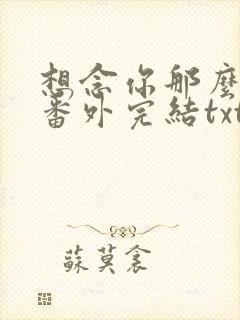 想念你那麼
番外完結txt
蘇莫裳